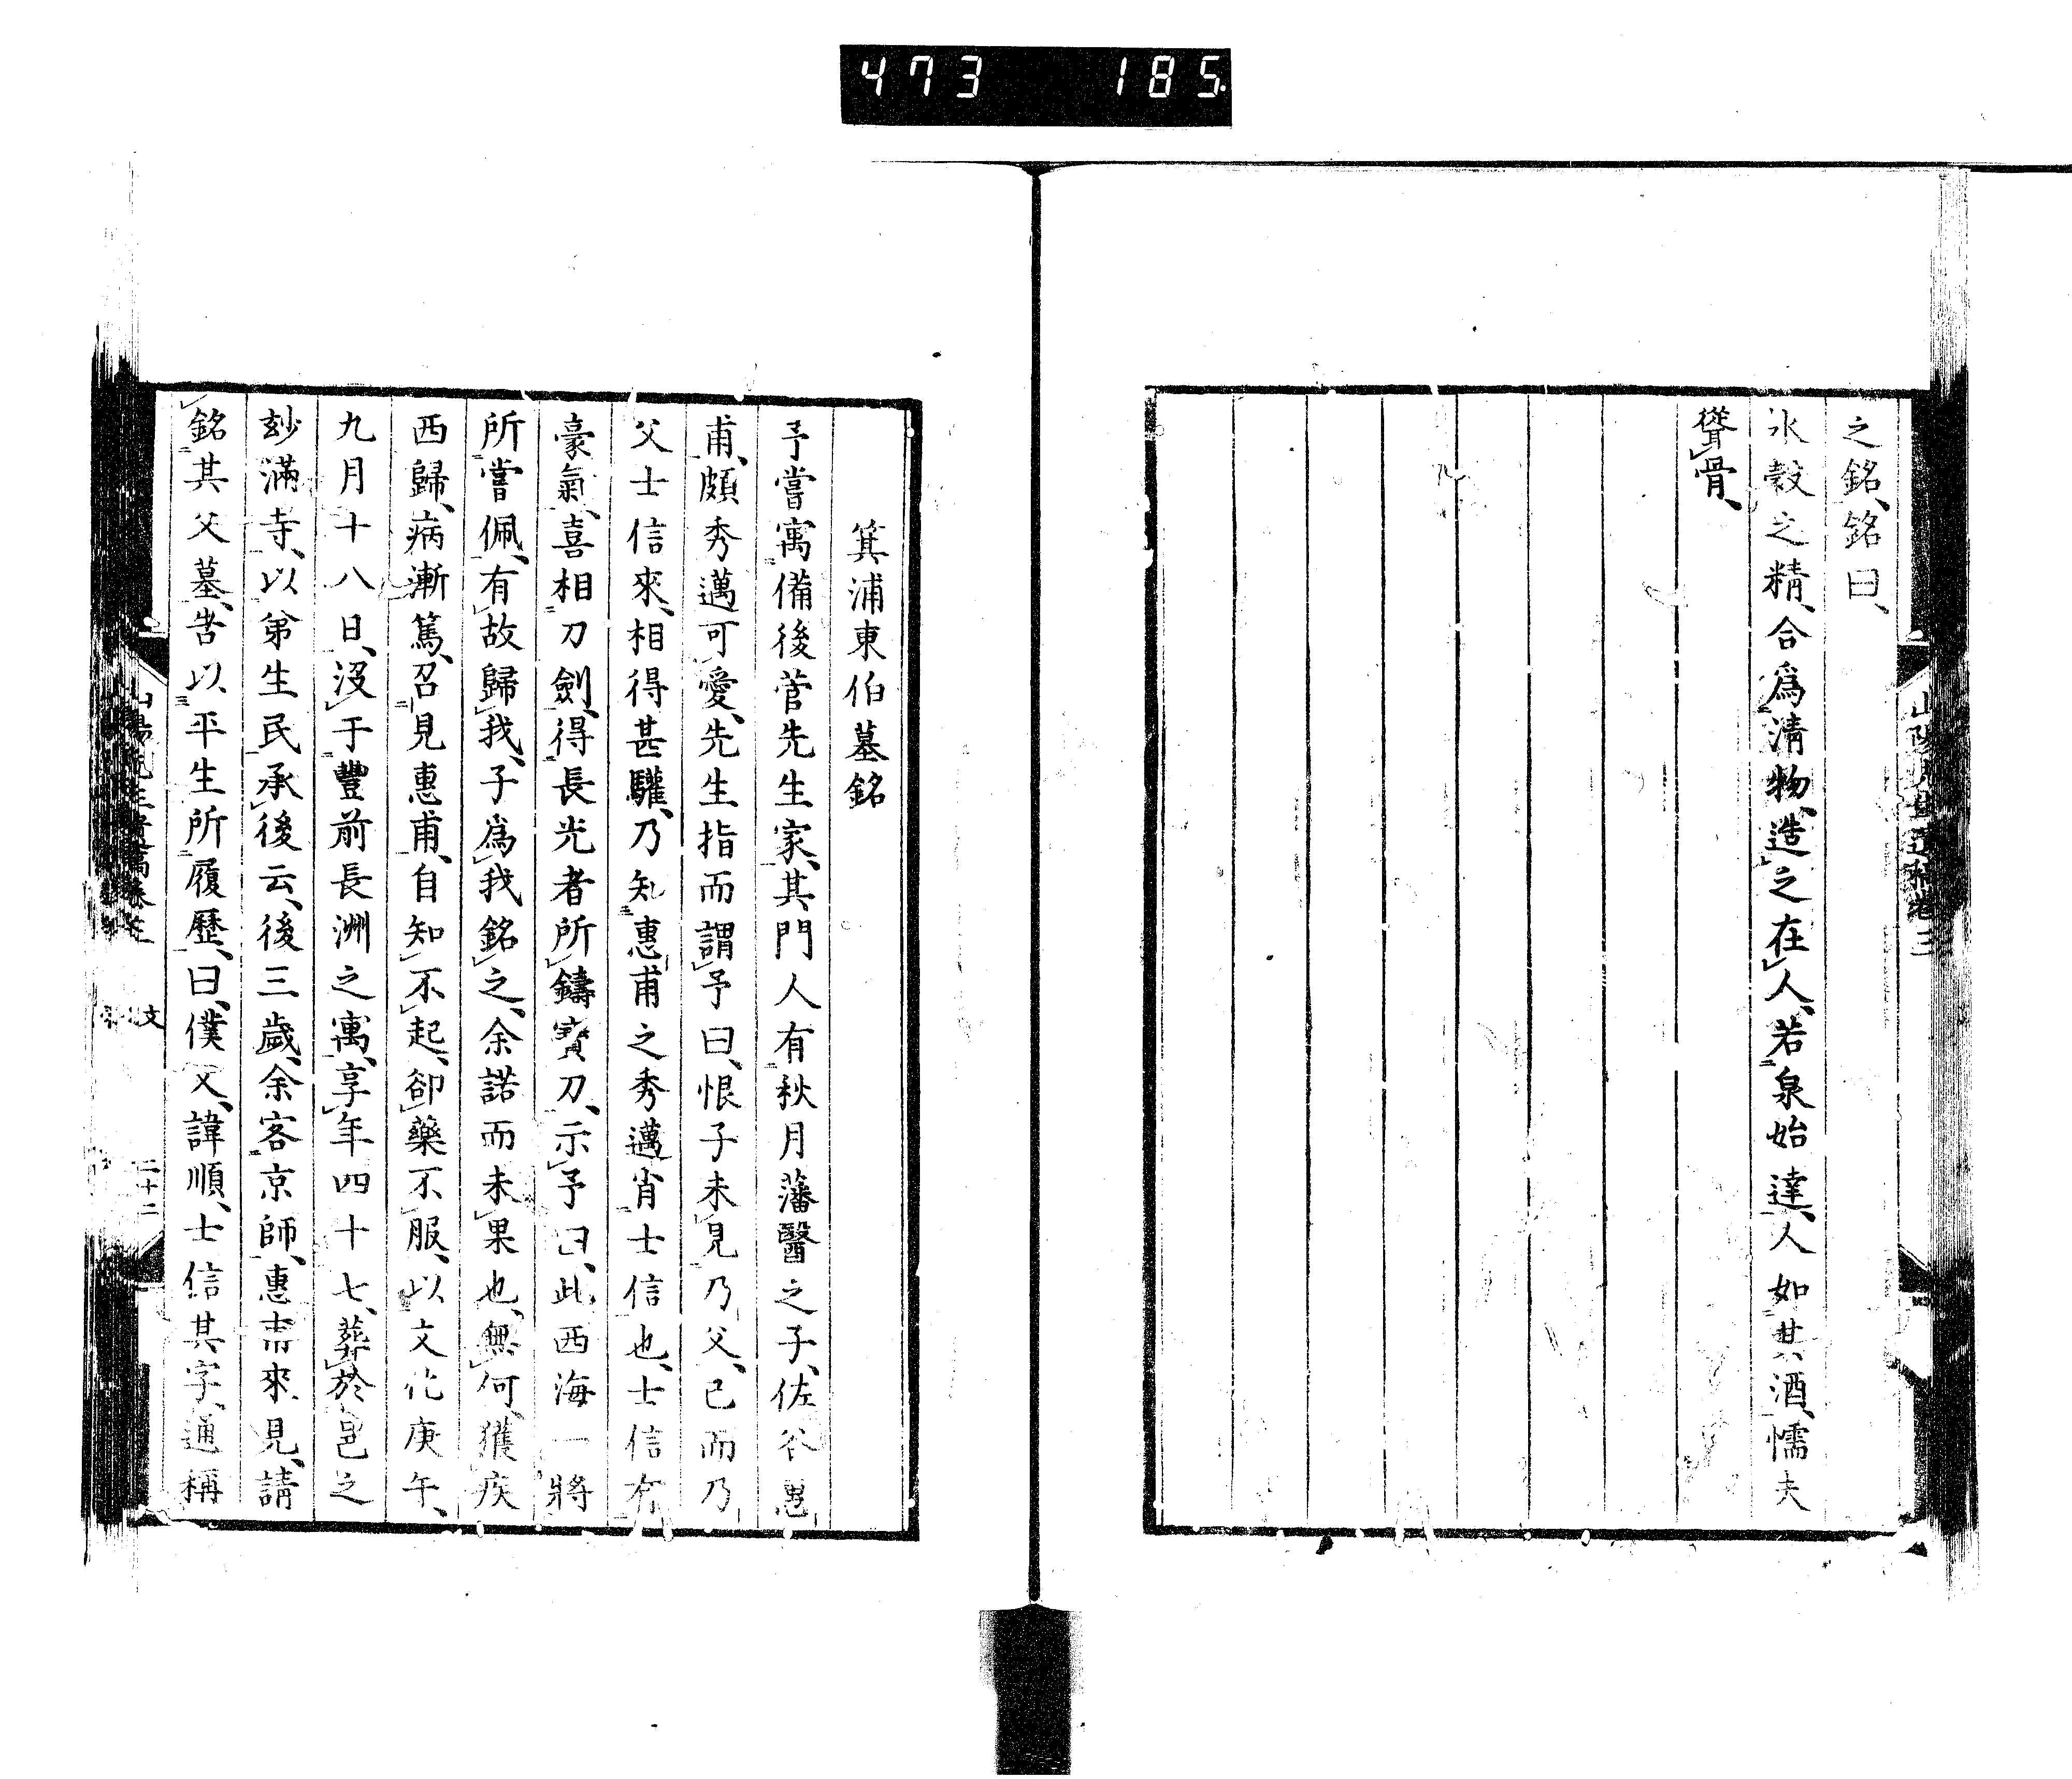 473 185.
之銘、銘曰、
水穀之精、合爲淸物、造之在人、若泉始達、人如其酒、懦夫
聳骨、
箕浦東伯墓銘
予嘗寓備後菅先生家、其門人有秋月藩醫之子、佐谷惠
甫、頗秀邁可愛、先生指而謂予曰、恨子未見乃父、已而乃
父士信來、相得甚驩、乃知惠甫之秀邁肖士信也、士信有
豪氣、喜相刀劍、得長光者所鑄寶刀、示予曰、此西海一將
所嘗佩、有故歸我、子爲我銘之、余諾而未果也、無何、獲疾
西歸、病漸篤、召見惠甫、自知不起、卻藥不服、以文化庚午、
九月十八日、沒于豐前長洲之寓、享年四十七、葬於邑之
玅滿寺、以弟生民承後云、後三歲、余客京師、惠甫來見、請
銘其父墓、吿以平生所履歷、曰、僕父、諱順、士信其字、通稱
山陽先生遺稿卷三
文
二十二